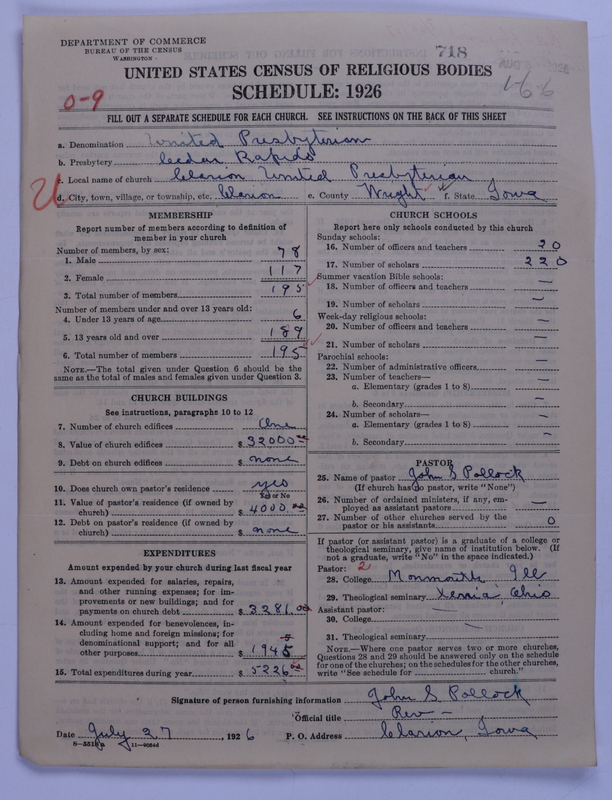 DEPARTMENT OF COMMERCE
BUREAU OF THE CENSUS
WASHINGTON
718
UNITED STATES CENSUS OF RELIGIOUS BODIES
SCHEDULE: 1926
0-9
1-6 6
FILL OUT A SEPARATE SCHEDULE FOR EACH CHURCH. SEE INSTRUCTIONS ON THE BACK OF THIS SHEET
a. Denomination United Presbyterian
b. Presbytery Cedar Rapids
c. Local name of church Clarion United Presbyterian
d. City, town, village, or township, etc. Clarion e. County Wright f. State Iowa
MEMBERSHIP
Report number of members according to definition of
member in your church
Number of members, by sex:
1. Male 78
2. Female 117
3. Total number of members 195
Number of members under and over 13 years old:
4. Under 13 years of age 6
5. 13 years old and over 189
6. Total number of members 195
NOTE.—The total given under Question 6 should be
same as the total of males and females given under Question 3.
CHURCH BUILDINGS
See instructions, paragraphs 10 to 12
7. Number of church edifices One
8. Value of church edifices $ 32000.00
9. Debt on church edifices $ none
10. Does church own pastor's residence yes
Yes or No
11. Value of pastor's residence (if owned by
church) $ 4000.00
12. Debt on pastor's residence (if owned by
church) $ none
EXPENDITURES
Amount expended by your church during last fiscal year
13. Amount expended for salaries, repairs,
and other running expenses; for im-
provements or new buildings; and for
payments on church debt $ 3281.00
14. Amount expended for benevolences, in-
cluding home and foreign missions; for
denominational support; and for all
other purposes $ 1945
15. Total expenditures during year $ 5226.00
CHURCH SCHOOLS
Report here only schools conducted by this church
Sunday schools:
16. Number of officers and teachers 20
17. Number of scholars 220
Summer vacation Bible schools:
18. Number of officers and teachers —
19. Number of scholars —
Week-day religious schools:
20. Number of officers and teachers —
21. Number of scholars —
Parochial schools:
22. Number of administrative officers —
23. Number of teachers—
a. Elementary (grades 1 to 8) —
b. Secondary —
24. Number of scholars—
a. Elementary (grades 1 to 8) —
b. Secondary —
PASTOR
25. Name of pastor John S Pollock
(If church has no pastor, write "None")
26. Number of ordained ministers, if any, em-
ployed as assistant pastors —
27. Number of other churches served by the
pastor or his assistants 0
If pastor (or assistant pastor) is a graduate of a college or
theological seminary, give name of institution below. (If
not a graduate, write "No" in the space indicated.)
Pastor: 2
28. College Monmouth Ill
29. Theological seminary Xenia, Ohio
Assistant pastor: —
30. College —
31. Theological seminary
NOTE.—Where one pastor serves two or more churches,
Questions 28 and 29 should be answered only on the schedule
for one of the churches; on the schedules for the other churches,
write "See schedule for church."
Signature of person furnishing information John S Pollock
Official title Rev —
Date July 27, 1926 P. O. Address Clarion, Iowa
11—9024d